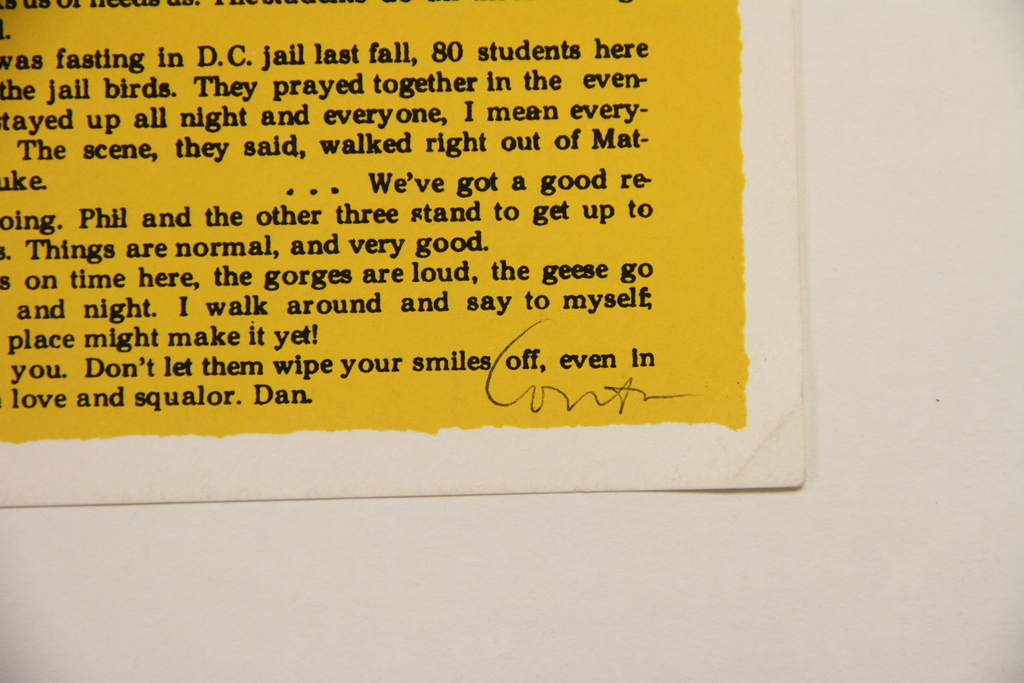 us or needs us. The students do
l.
was fasting in D.C. jail last fall, 80 students here
the jail birds. They prayed together in the even-
stayed up all night and everyone, I mean every-
The scene, they said, walked right out of Mat-
uke. . . . We've got a good re-
oing. Phil and the other three stand to get up to
s. Things are normal, and very good.
s on time here, the gorges are loud, the geese go
and night. I walk around and say to myself;
place might make it yet!
you. Don't let them wipe your smiles off, even in
love and squalor. Dan.
Corita